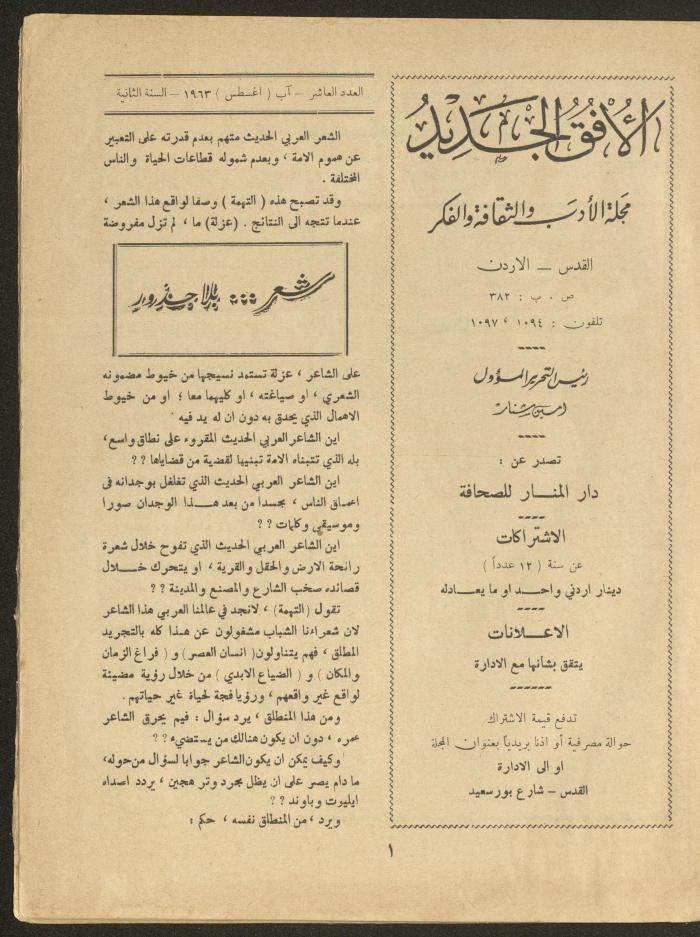 الأفق الجديد
مجلة الأدب والثقافة والفكر
القدس ــ الاردن
ص . ب : ٣٨٢
تلفون : ١٠٩٤ ، ١٠٩٧
رئيس التحرير المسؤول
امين شنار
تصدر عن :
دار المنـــار للصحافة
الاشتراكات
عن سنة ( ١٢ عدداً )
دينار اردني واحـــد او ما يعـــادله
الاعـــلانات
يتفق بشانها مع الادارة
تدفع قيمة الاشتراك
حوالة مصرفية أو اذنا بريدياً بعنوان المجلة
او الى الادارة
القدس – شارع بور سعيد
العدد العاشر – آب ( اغسطس ) ١٩٦٣ – السنة الثانية
الشعر العربي الحديث متهم بعدم قدرته على التعبير
عن هموم الامة ، وبعدم شموله قطاعات الحياة والناس
المختلفة .
وقد تصبح هذه ( التهمة ) وصفا لواقع هذا الشعر ،
عندما تتجه الى النتائج . (عزلة) ما ، لم تزل مفروضة
شعر ... بلا جذور
على الشاعر ، عزلة تستمد نسيجها من خيوط مضمونه
الشعري ، او صياغته ، او كليهما معا ؛ او من خيوط
الاهمال الذي يحدق به دون ان له يد فيه .
اين الشاعر العربي الحديث المقروء على نطاق واسع،
بله الذي تتبناه الامة تبنيها لقضية من قضاياها ؟؟
اين الشاعر العربي الحديث الذي تغلغل بوجدانه في
اعماق الناس ، مجسدا من بعد هـــذا الوجدان صورا
وموسيقى وكلمات ؟؟
اين الشاعر العربي الحديث الذي تفوح خلال شعرة
رائحة الارض والحقل والقرية ، او يتحرك خـــلال
قصائده صخب الشارع والمصنع والمدينة ؟؟
تقول (التهمة) ، لانجد في عالمنا العربي هذا الشاعر
لان شعراءنا الشباب مشغولون عن هـذا كله بالتجريد
المطلق ، فهم يتناولون( انسان العصر) و ( فراغ الزمان
والمكان ) و ( الضياع الابدي ) من خلال رؤية مضيئة
لواقع غير واقعهم ، ورؤيا فجة لحياة غير حياتهم .
ومن هذا المنطلق ، يرد سؤال : فيم يحرق الشاعر
عمره ، دون ان يكون هنالك من يستضيء ؟؟
وكيف يمكن ان يكون الشاعر جوابا لسؤال من حوله،
ما دام يصر على ان يظل مجرد وتر هجين ، يردد اصداء
ايليوت وباوند ؟؟
ويرد ، من المنطلق نفسه ، حكم :
١